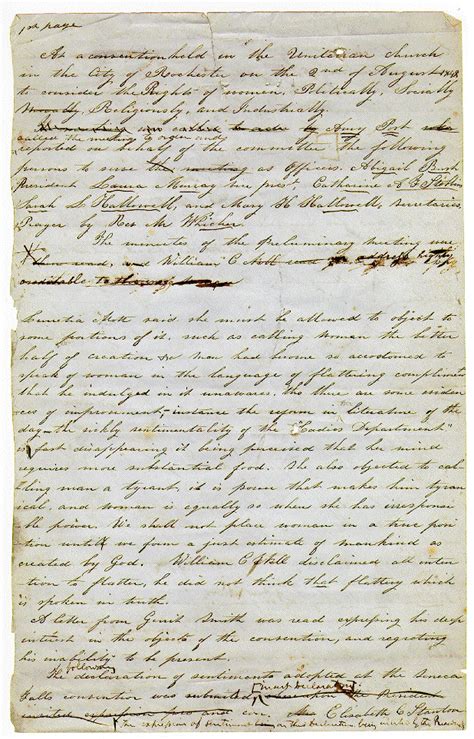 1st page
At a convention held in the Unitarian church
in the City of Rochester on the 2nd of August 1848
to consider the Rights of women, Politically, Socially
Morally, Religiously and Industrially
called to order by Amy Post
called the meeting to order and
reported on behalf of the committee the following
persons to serve the meeting as Officers. Abigail Bush
President Laura Murray vice pres. Catharine A F Stebbins
Sarah L Hallowell, and Mary H Hallowell, secretaries,
Prayer by Rev Mr Whicher
The minutes of the preliminary meeting was
then read, and William C Nell
Lucretia Mott said she must be allowed to object to
some portions of it, such as calling woman the better
half of creation man had become so accustomed to
speak of woman in the language of flattering compliments
that he indulged in it unawares, tho there are some evid
ences of improvement, instance the reform in literature of the
day the sickly sentimentality of the "Ladies Department"
is fast disappearing it being perceived that her mind
requires more substantial food. She also objected to cal
ling man a tyrant, it is power that makes him tyran
ical, and woman is equally so when she has irresponsi
ble power. We shall not place woman in a true posi
tion until we form a just estimate of mankind as
created by God. William C Nell disclaimed all inten
tion to flatter, he did not think that flattery which
is spoken in truth.
A letter from Gerrit Smith was read expressing his deep
interest in the objects of the convention, and regretting
his inability to be present.
following
The declaration of sentiments adopted at the Seneca
Falls convention was Mrs Elisabeth C Stanton
expression of sentiment on this Declaration being invited by the President